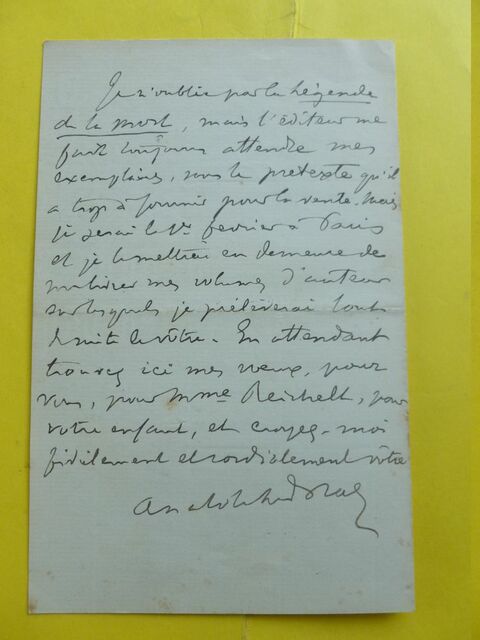 Je n'oublie pas la Légende
de la Mort, mais l'éditeur me
fait toujours attendre mes
exemplaires, sous le prétexte qu'il
a trop à fournir pour la vente. Mais
je serai le 1er février à Paris
et je le mettrai en demeure de
me livrer mes volumes d'auteur
sur lesquels je prélèverai tout
de suite le vôtre. En attendant
trouvez ici mes vœux, pour
vous, pour Mme Reichelt, pour
votre enfant, et croyez-moi
fidèlement et cordialement vôtre
Anatole Le Braz